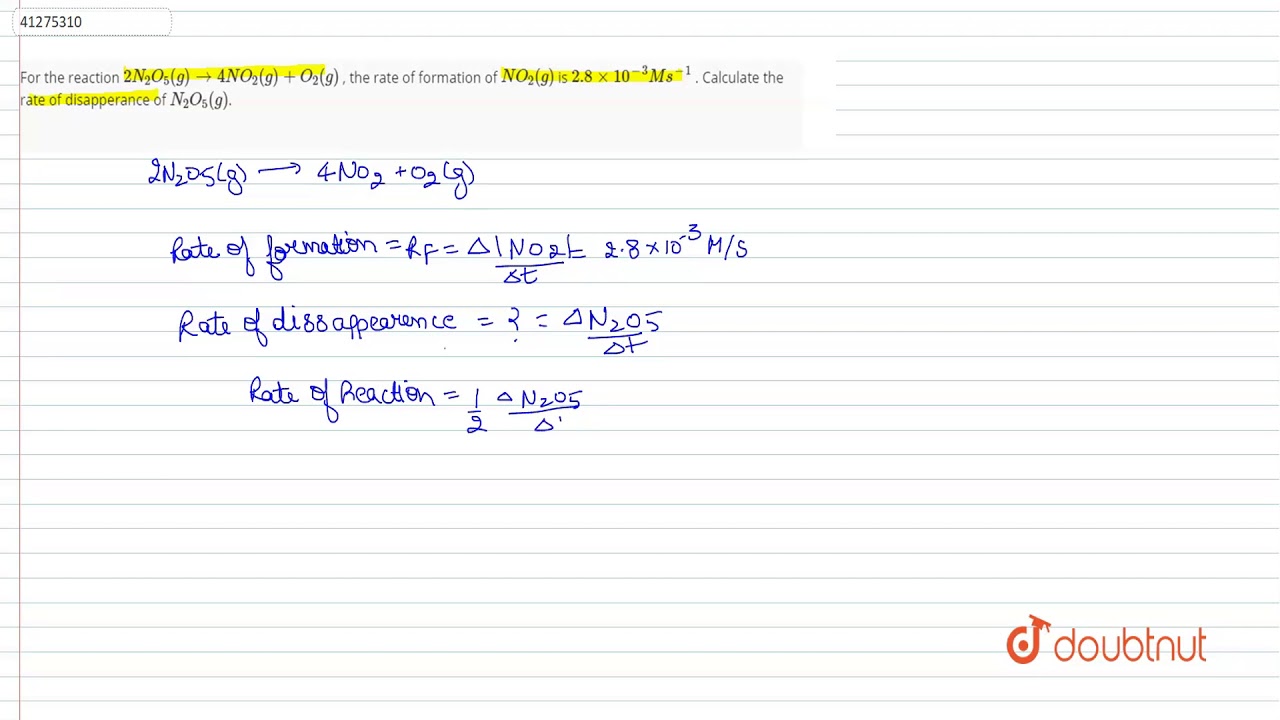 41275310
For the reaction 2N₂O₅(g) → 4NO₂(g) + O₂(g), the rate of formation of NO₂(g) is 2.8 × 10⁻³Ms⁻¹. Calculate the
rate of disapperance of N₂O₅(g).
2N₂O5(g) → 4NO₂ + O₂(g)
Rate of formation = RF = Δ|NO2|/Δt = 2.8 × 10⁻³ M/S
Rate of dissappearence = ? = ΔN₂O5/Δt
Rate of Reaction = 1/2 ΔN₂O5/Δ'
doubtnut